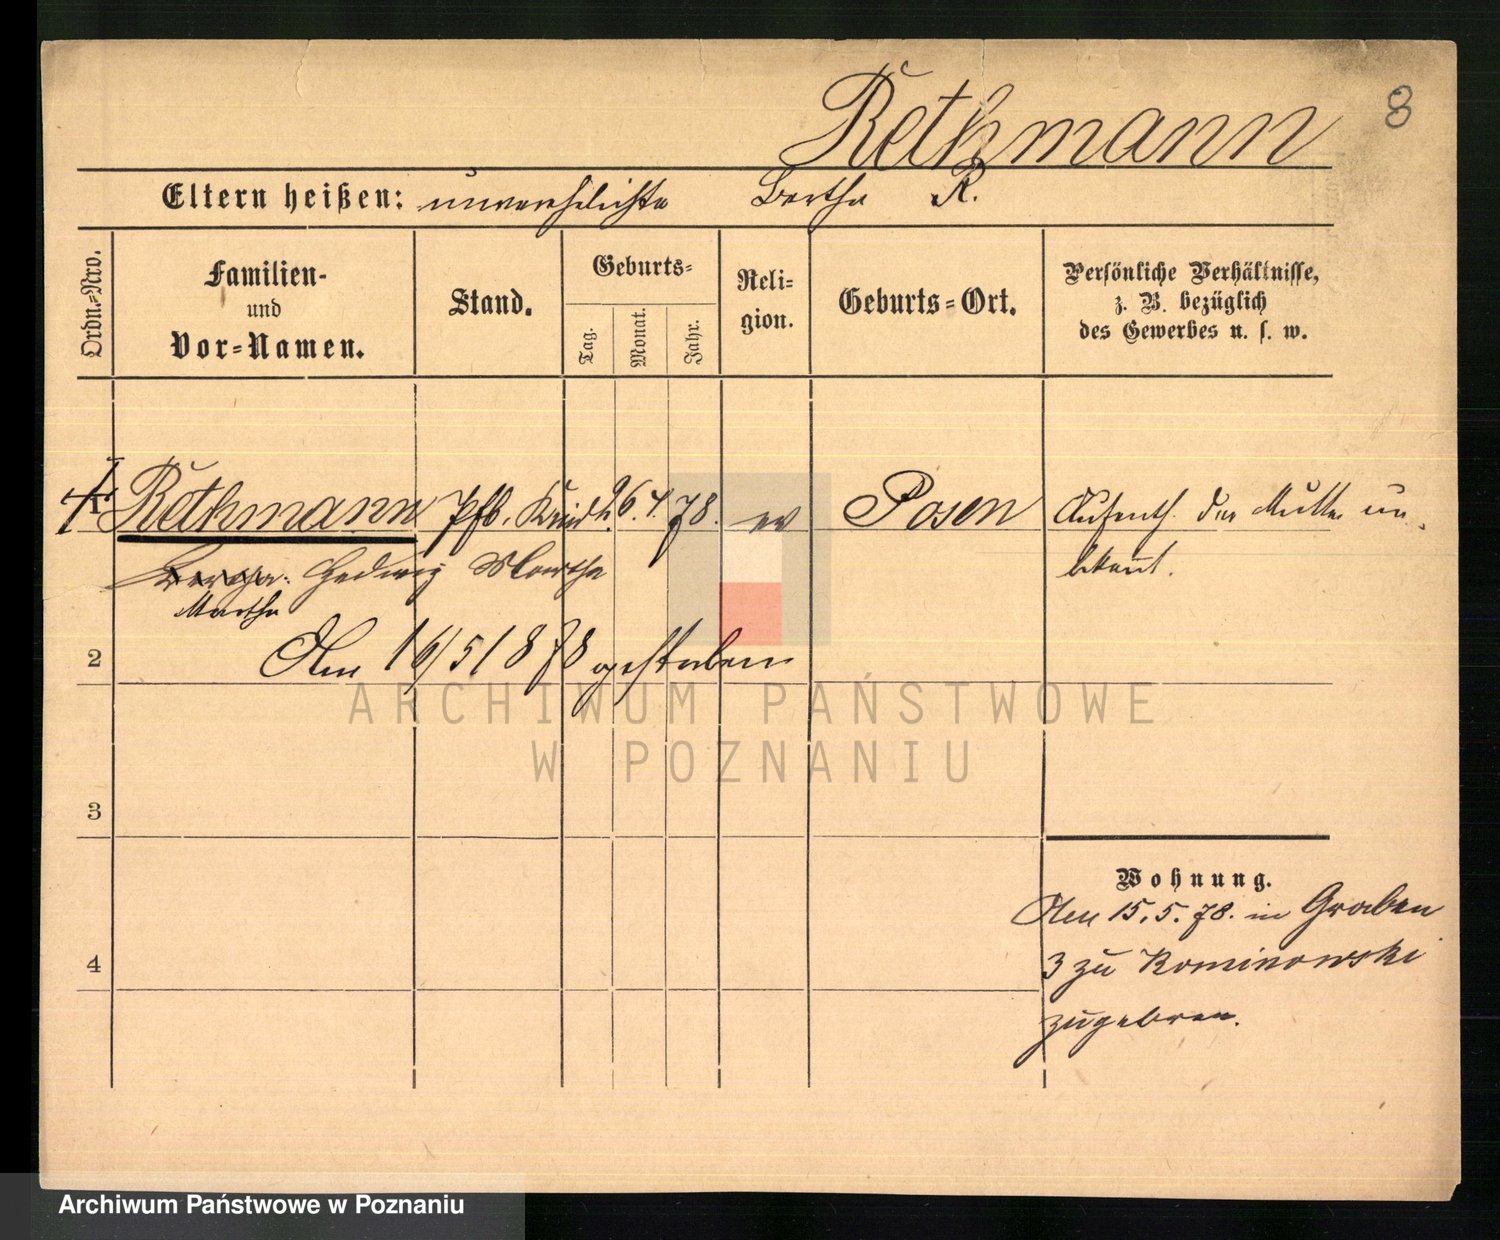 Rethmann
8
Eltern heißen: unverehlichte Bertha R.
Ordn.-Nro.
Familien-
und
Vor-Namen.
Stand.
Geburts-
Tag.
Monat.
Jahr.
Reli-
gion.
Geburts-Ort.
Persönliche Verhältnisse,
z. B. bezüglich
des Gewerbes u. s. w.
Rethmann 26. 4. 78. ev Posen Aufenth. der Mutter un-
bekannt.
Hedwig Martha
Martha
2
Am 16/5 1878 gestorben
3
4
Wohnung.
Am 15. 5. 78. in Graben
3 zu Kominowski
zugebren.
ARCHIWUM PAŃSTWOWE
W POZNANIU
Archiwum Państwowe w Poznaniu